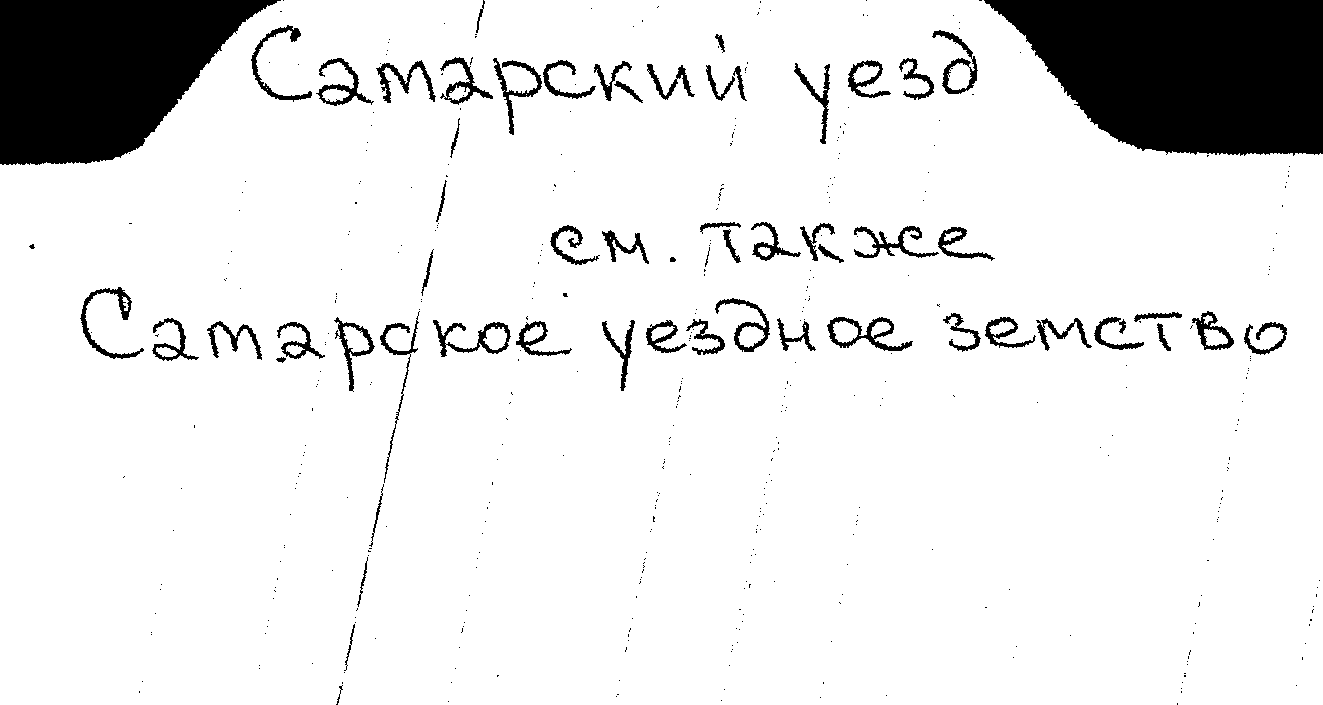 Самарский уезд
см. также
Самарское уездное земство